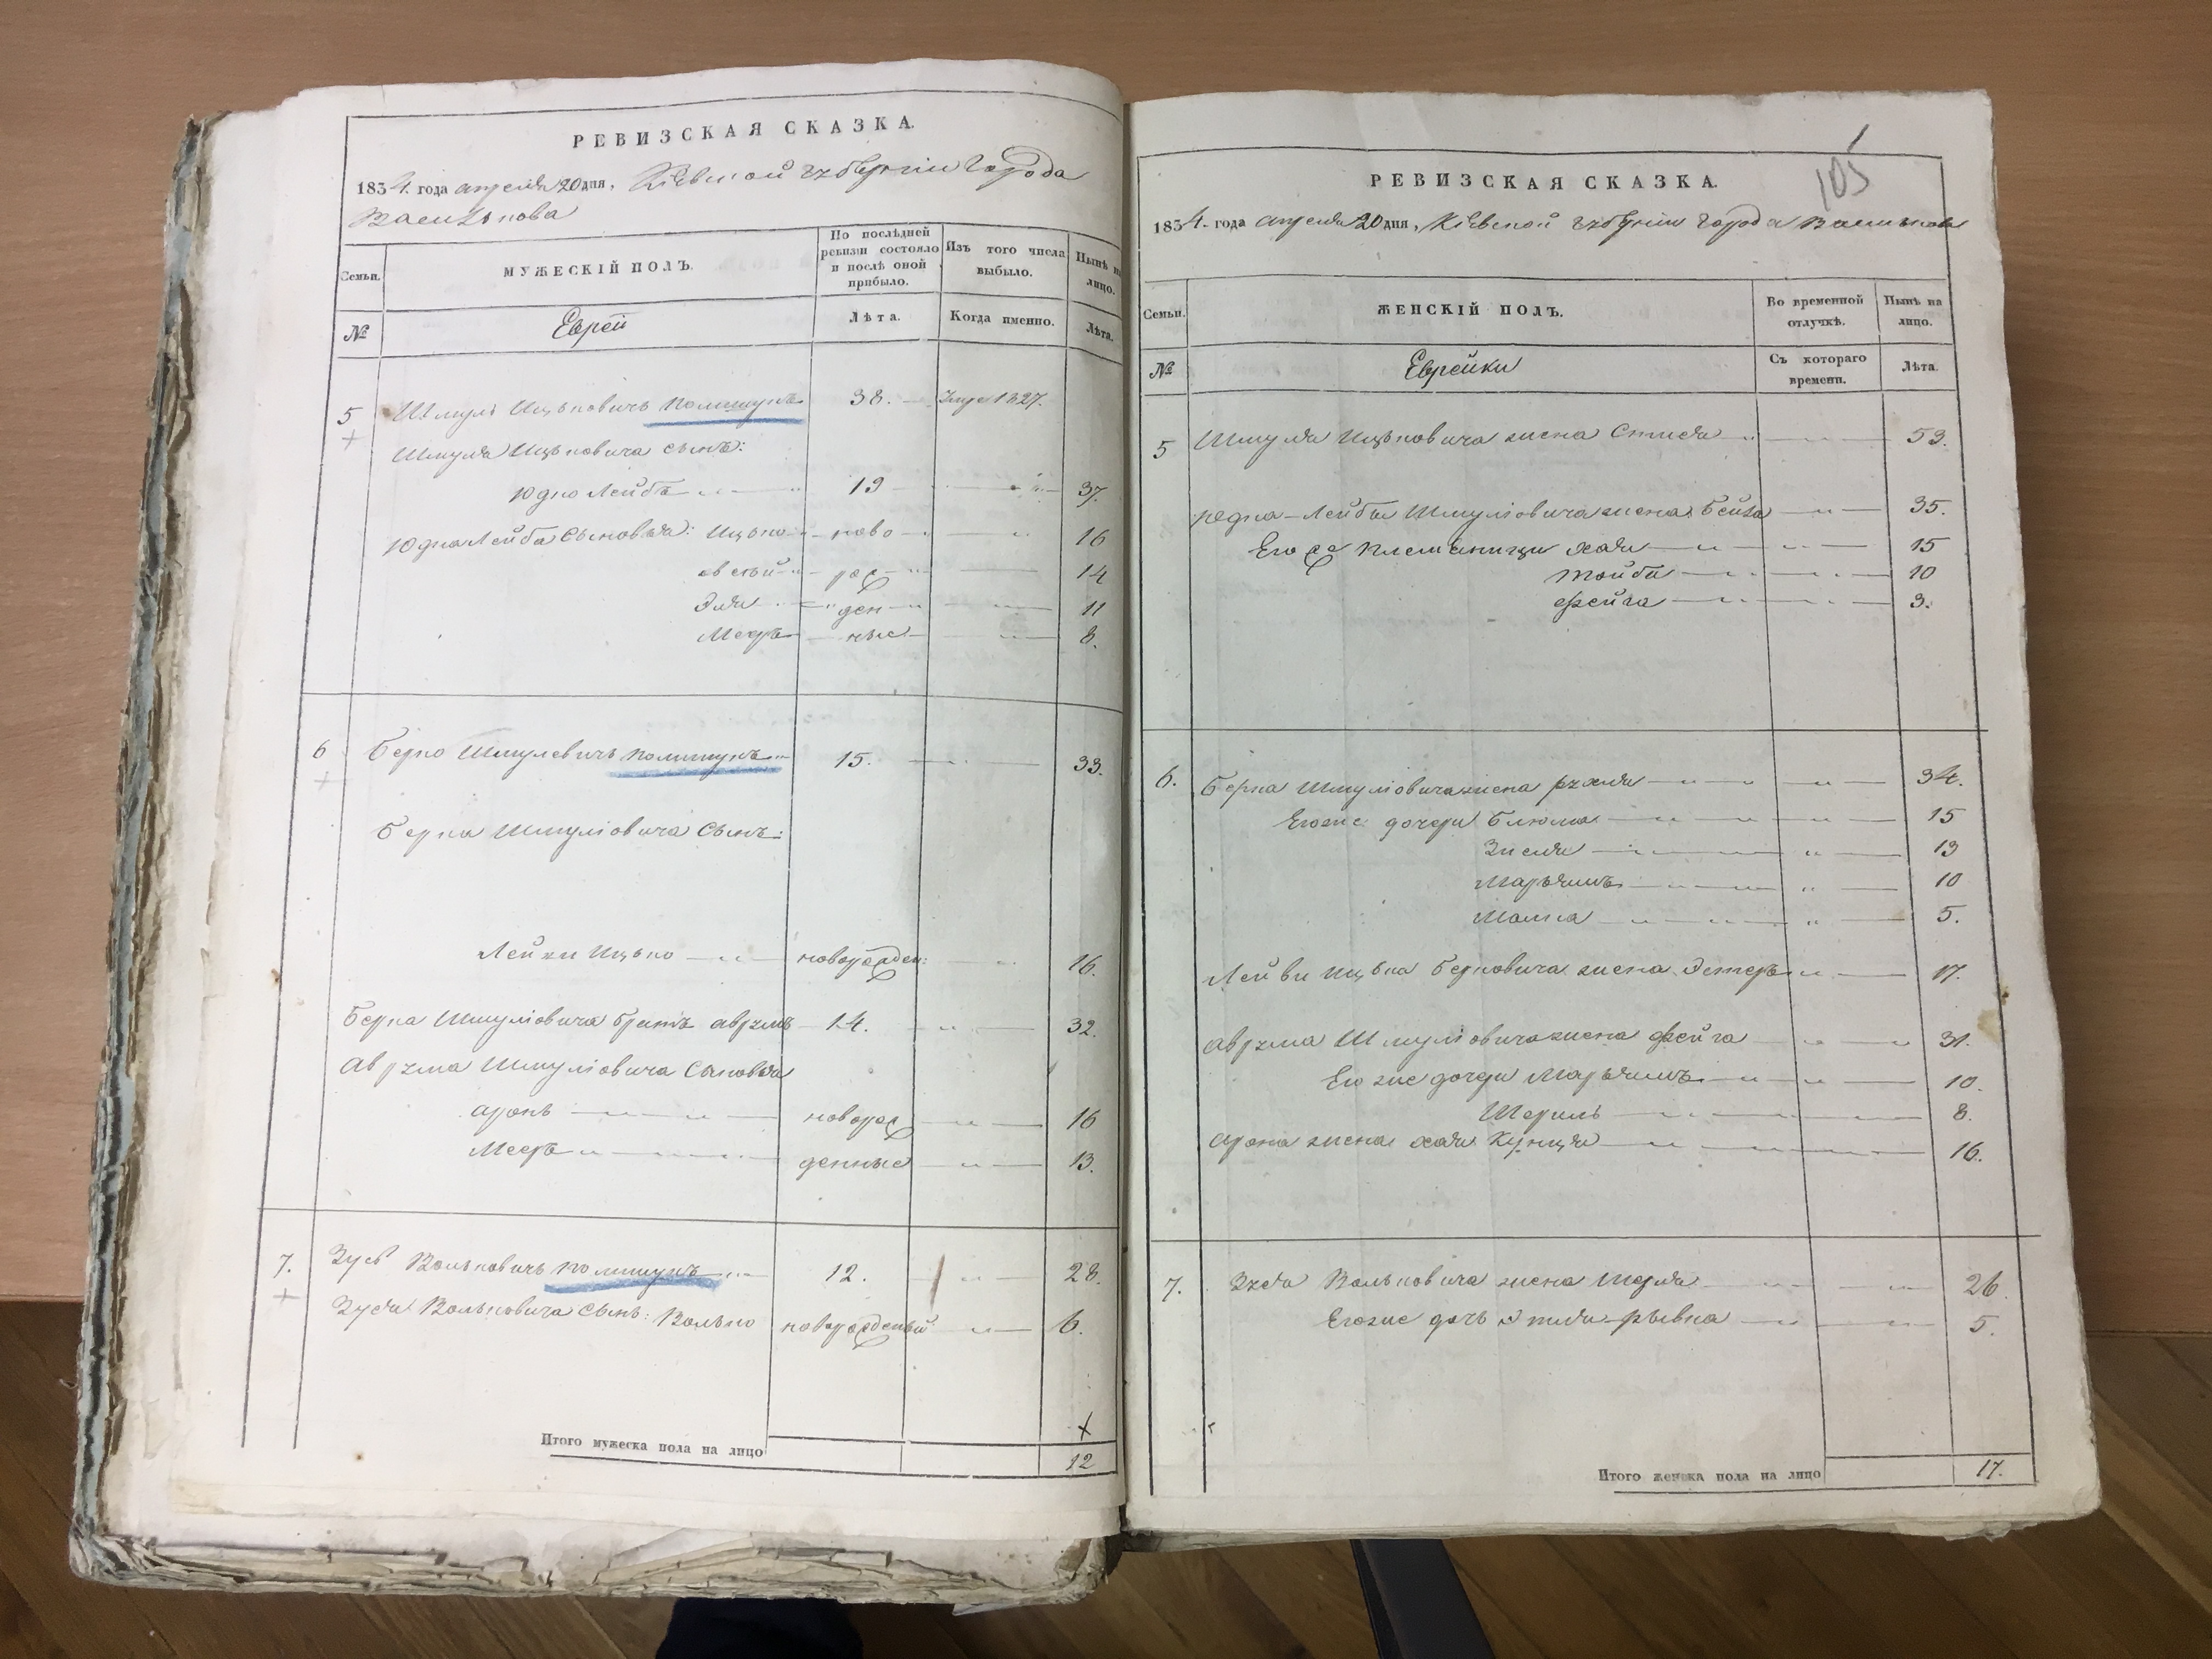 РЕВИЗСКАЯ СКАЗКА.
1834. года апреля 20 дня, Кіевской губерніи города
Василькова
Семьи.
МУЖЕСКІЙ ПОЛЪ.
По послѣдней ревизіи состояло и послѣ оной прибыло.
Изъ того числа выбыло.
Нынѣ на лицо.
№
Еврей
Лѣта.
Когда именно.
Лѣта.
5 Шмуль Ицьковичь Полищукъ 38. Умре 1827.
Шмуля Ицьковича сынъ:
Юдко Лейба 19 37.
Юдка Лейба сыновья: Ицько ново 16
рож 14
Эля ден 11
Мееръ ные 8.
6 Берко Шмулевичь Полищукъ 15. 33.
Берка Шмуліовича сынъ:
Ицько новорожден: 16.
Берка Шмуліовича братъ Аврумъ 14. 32.
Аврума Шмуліовича сыновья
Аронъ новорож 16
Мееръ денные 13.
7. Зусь Вольковичь Полищукъ 12. 28.
Зуся Вольковича сынъ: Волько новорожденый 6.
Итого мужеска пола на лицо
12
105
РЕВИЗСКАЯ СКАЗКА.
1834. года апреля 20 дня, Кіевской губерніи города Василькова
Семьи.
ЖЕНСКІЙ ПОЛЪ.
Во временной отлучкѣ.
Нынѣ на лицо.
№
Еврейки
Съ котораго времени.
Лѣта.
5 Шмуля Ицьковича жена 53.
Юдка-Лейбы Шмуліовича жена Бейла 35.
Его же племеницы Хая 15
Тойба 10
Фейга 3.
6. Берка Шмуліовича жена Рухля 34.
Его же дочери Блюма 15
Зисля 13
Марьямъ 10
Малка 5.
Ицька Берковича жена Эстеръ 17.
Аврума Шмуліовича жена Фейга 31.
Его же дочери Марьямъ 10.
8.
Арона жена Хая 16.
7. Зуся Вольковича жена 26
Его же дочь Рывка 5.
Итого женска пола на лицо
17.